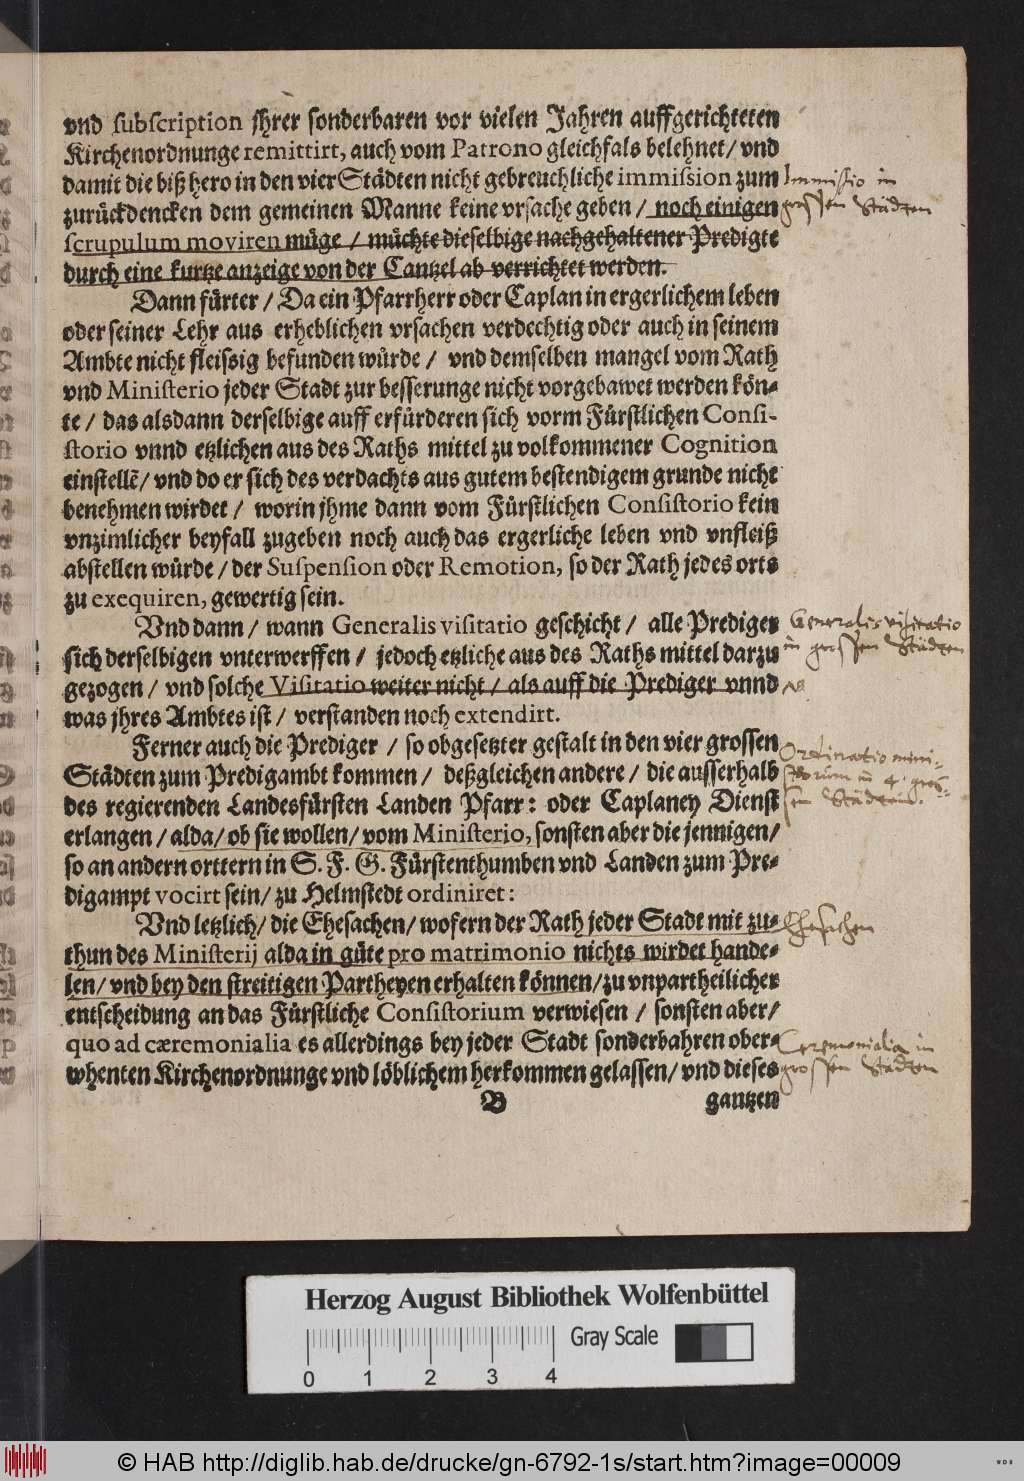 vnd subscription jhrer sonderbaren vor vielen Jahren auffgerichteten
Kirchenordnunge remittirt, auch vom Patrono gleichfals belehnet/ vnd
damit die biß hero in den vier Städten nicht gebreuchliche immission zum
zurückdencken dem gemeinen Manne keine vrsache geben / noch einigen
scrupulum moviren müge / müchte dieselbige nachgehaltener Predigte
durch eine kurtze anzeige von der Cantzel ab verrichtet werden.
Immissio in
grossen Städten
Dann fürter / Da ein Pfarrherr oder Caplan in ergerlichem leben
oder seiner Lehr aus erheblichen vrsachen verdechtig oder auch in seinem
Ambte nicht fleissig befunden würde / vnd demselben mangel vom Rath
vnd Ministerio jeder Stadt zur besserunge nicht vorgebawet werden kön-
te / das alsdann derselbige auff erfürderen sich vorm Fürstlichen Consi-
storio vnnd etzlichen aus des Raths mittel zu volkommener Cognition
einstellē/ vnd do er sich des verdachts aus gutem bestendigem grunde nicht
benehmen wirdet / worin jhme dann vom Fürstlichen Consistorio kein
vnzimlicher beyfall zugeben noch auch das ergerliche leben vnd vnfleiß
abstellen würde / der Suspension oder Remotion, so der Rath jedes orts
zu exequiren, gewertig sein.
Vnd dann / wann Generalis visitatio geschicht / alle Prediger
sich derselbigen vnterwerffen / jedoch etzliche aus des Raths mittel darzu
gezogen / vnd solche Visitatio weiter nicht / als auff die Prediger vnnd
was jhres Ambtes ist / verstanden noch extendirt.
Generalis visitatio
in grossen Städten
Ferner auch die Prediger / so obgesetzter gestalt in den vier grossen
Städten zum Predigambt kommen / deßgleichen andere / die ausserhalb
des regierenden Landesfürsten Landen Pfarr: oder Caplaney Dienst
erlangen / alda/ ob sie wollen/ vom Ministerio, sonsten aber die jennigen/
so an andern orttern in S. F. G. Fürstenthumben vnd Landen zum Pre-
digampt vocirt sein/ zu Helmstedt ordiniret:
Ordinatio mini-
strorum in 4. gros-
sen Städten.
Vnd letzlich/ die Ehesachen/ wofern der Rath jeder Stadt mit zu-
thun des Ministerij alda in güte pro matrimonio nichts wirdet hande-
len/ vnd bey den streitigen Partheyen erhalten können/ zu vnpartheilicher
entscheidung an das Fürstliche Consistorium verwiesen / sonsten aber/
quo ad cæremonialia es allerdings bey jeder Stadt sonderbahren ober-
whenten Kirchenordnunge vnd löblichem herkommen gelassen/ vnd dieses
Ehesachen
Ceremonialia in
grossen Städten
B
gantzen
Herzog August Bibliothek Wolfenbüttel
Gray Scale
0 1 2 3 4
© HAB http://diglib.hab.de/drucke/gn-6792-1s/start.htm?image=00009